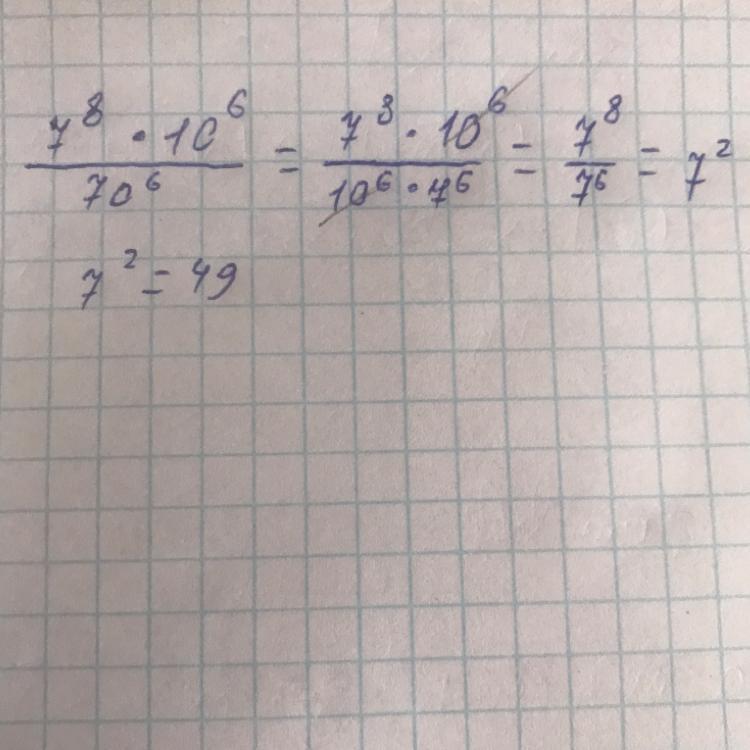 7⁸ · 10⁶ / 70⁶ = 7⁸ · 10⁶ / 10⁶ · 7⁶ = 7⁸ / 7⁶ = 7²
7² = 49